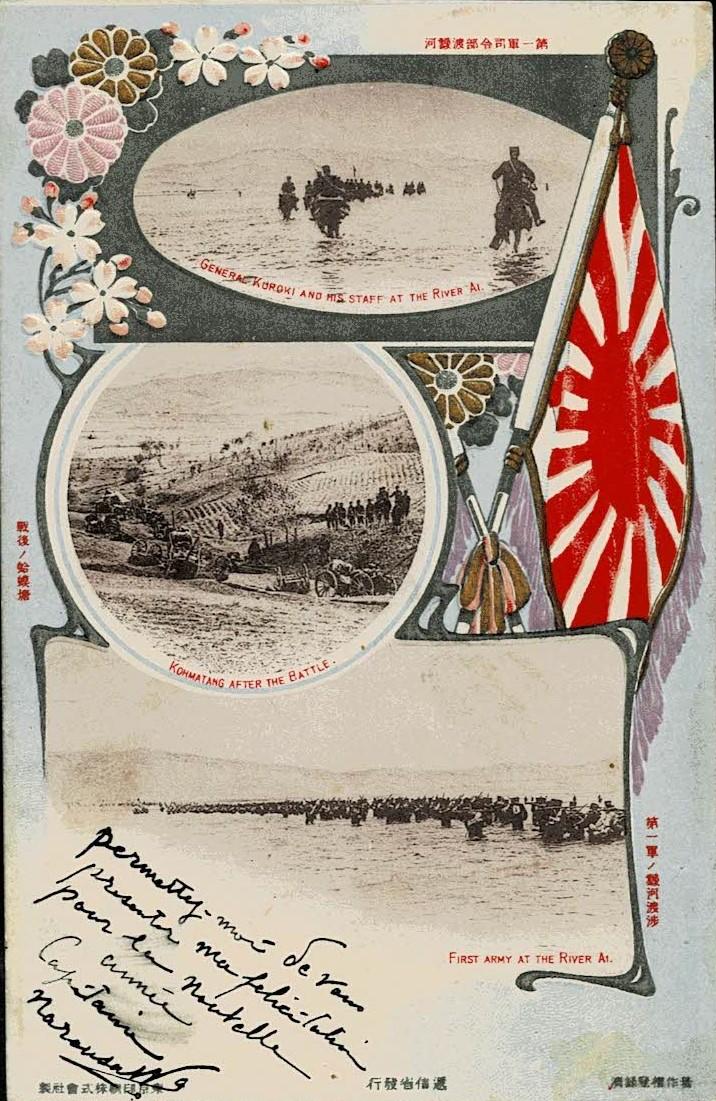 第一軍司令部渡靉河
GENERAL KUROKI AND HIS STAFF AT THE RIVER AI.
戰後ノ蛤蟆塘
KOHMATANG AFTER THE BATTLE.
第一軍ノ靉河渡渉
FIRST ARMY AT THE RIVER AI.
permettez-moi de vous
presenter ma felicitation
pour la nouvelle
année
Capitaine
著作權登録濟
遞信省發行
東京印刷株式會社製